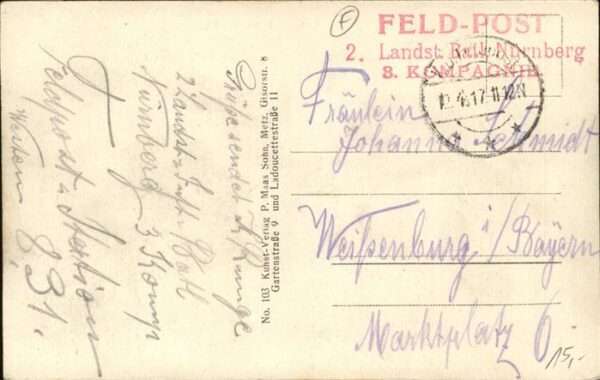 F
FELD-POST
2. Landst. Batl. Nürnberg
3. KOMPAGNIE
17.11-12N
Fräulein
Johanna Schmidt
Weißenburg i/Bayern
Marktplatz 6
15,-
No. 103 Kunst-Verlag P. Maas Sohn, Metz, Gisostr. 8
Gartenstraße 9 und Ladoucettestraße 11
Grüße sendet
2 Landst. Inft. Batl
Nürnberg 3 Komp
Feldpost Station
Westen 831.